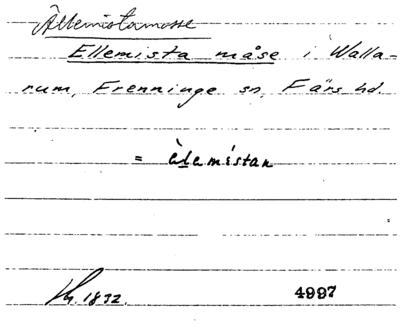 Ällemistamosse
Ellemista måse i Walla-
rum, Frenninge sn, Färs hd.
= èlemístan
1832. 4997